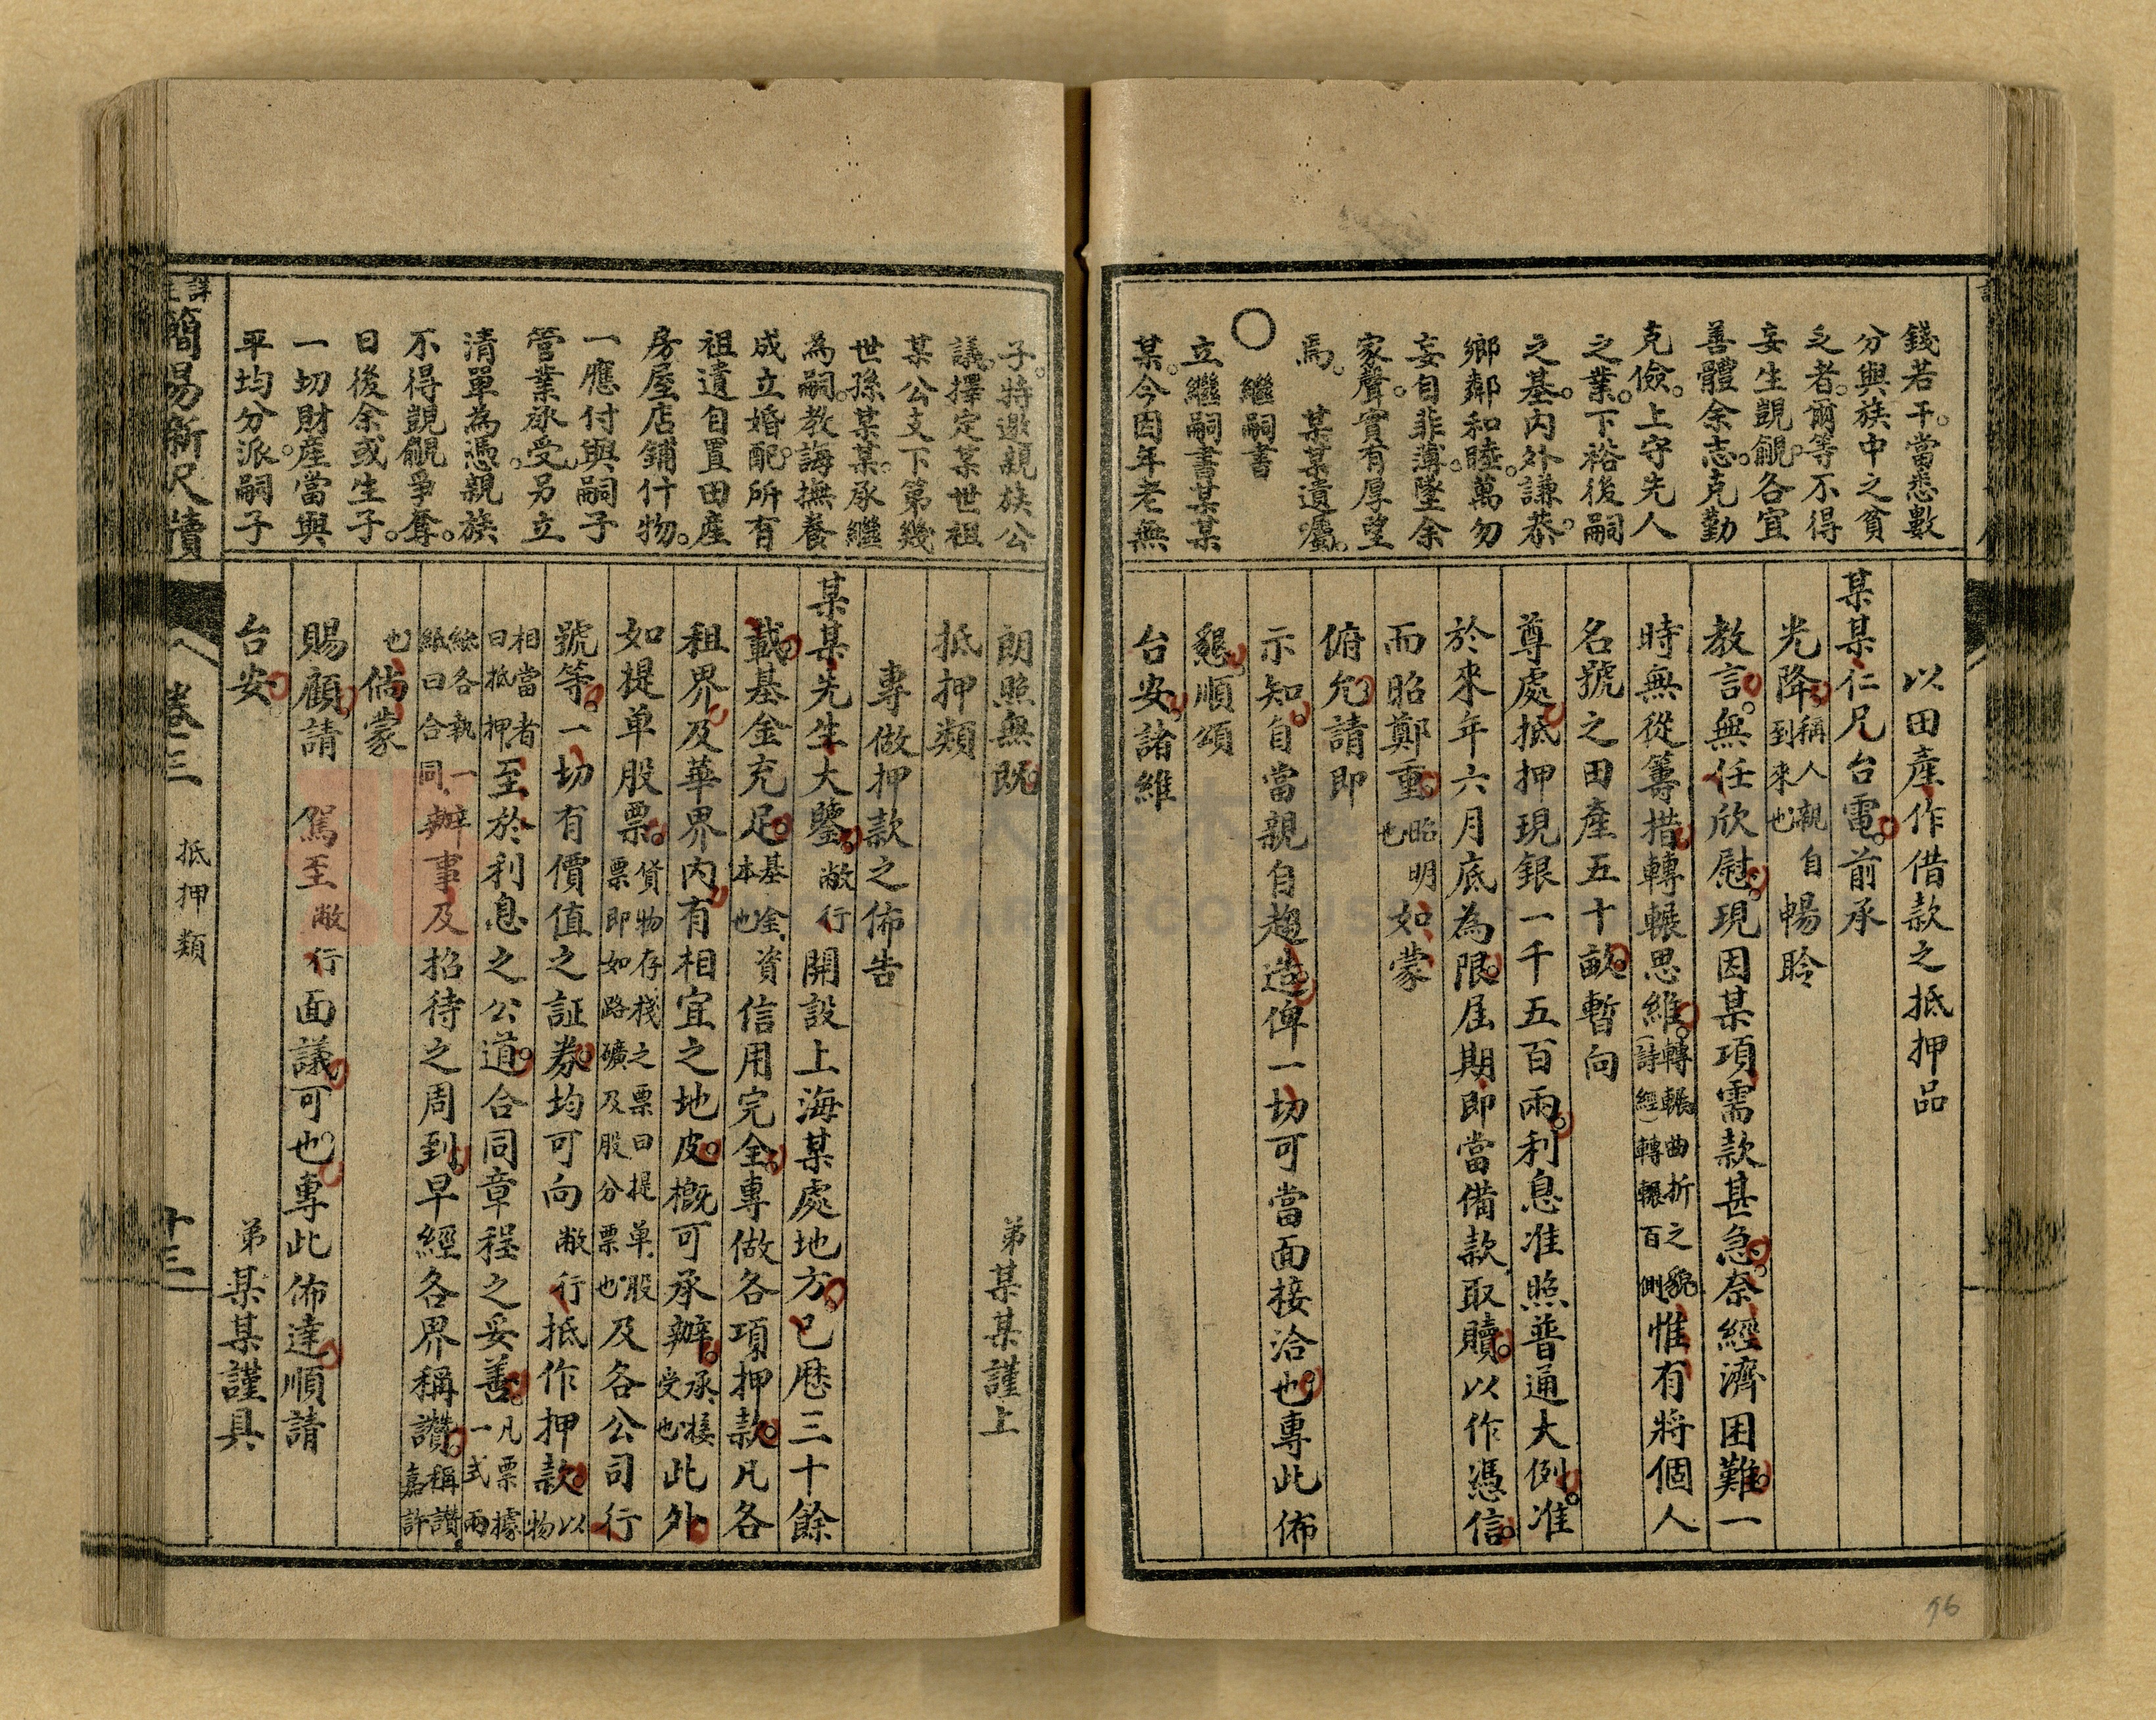 錢若干。當悉數
分與族中之貧
乏者。爾等不得
妄生覬覦。各宜
善體余志。克勤
克儉。上守先人
之業。下裕後嗣
之基。内外謙恭。
鄉鄰和睦。萬勿
妄自菲薄。墜余
家聲。實有厚望
焉。 某某遺囑。
〇 繼嗣書
立繼嗣書某某
某。今因年老無
以田產作借款之抵押品
某某仁兄台電。前承
光降稱人親自到來也暢聆
教言。無任欣慰。現因某項需款甚急。奈經濟困難。一
時無從籌措。轉輾思維。轉輾曲折之貌(詩經)轉輾百側惟有將個人
名號之田產五十畝。暫向
尊處抵押現銀一千五百兩。利息准照普通大例。准
於來年六月底為限。屆期即當備款取贖。以作憑信。
而昭鄭重。昭明也如蒙
俯允。請即
示知。自當親自趨造。俾一切可當面接洽也。專此佈
懇。順頌
台安。諸維
96
子。特邀親族公
議。擇定某世祖
某公支下第幾
世孫某某。承繼
為嗣。教誨撫養
成立婚配。所有
祖遺自置田產
房屋店鋪什物。
一應付與嗣子
管業承受。另立
清單為憑。親族
不得覬覦爭奪。
日後余或生子。
一切財產當與
平均分派。嗣子
朗照無既。 弟某某謹上
抵押類
專做押款之佈告
某某先生大鑒。敝行開設上海某處地方。已歷三十餘
載。基金充足。基金本也資信用完全。專做各項押款。凡各
租界及華界内。有相宜之地皮。概可承辦。承接受也此外
如提单股票。貨物存棧之票曰提单股票即如路礦及股分票也及各公司行
號等。一切有價值之証券。均可向敝行抵作押款。以物
相當者曰抵押至於利息之公道。合同章程之妥善。凡票據一式兩
紙各執一紙曰合同辦事及招待之周到。早經各界稱讚。稱讚嘉許
也倘蒙
賜顧。請 駕至敝行面議可也。專此佈達。順請
台安。 弟某某謹具
簡易新尺牘 卷三 抵押類 十三